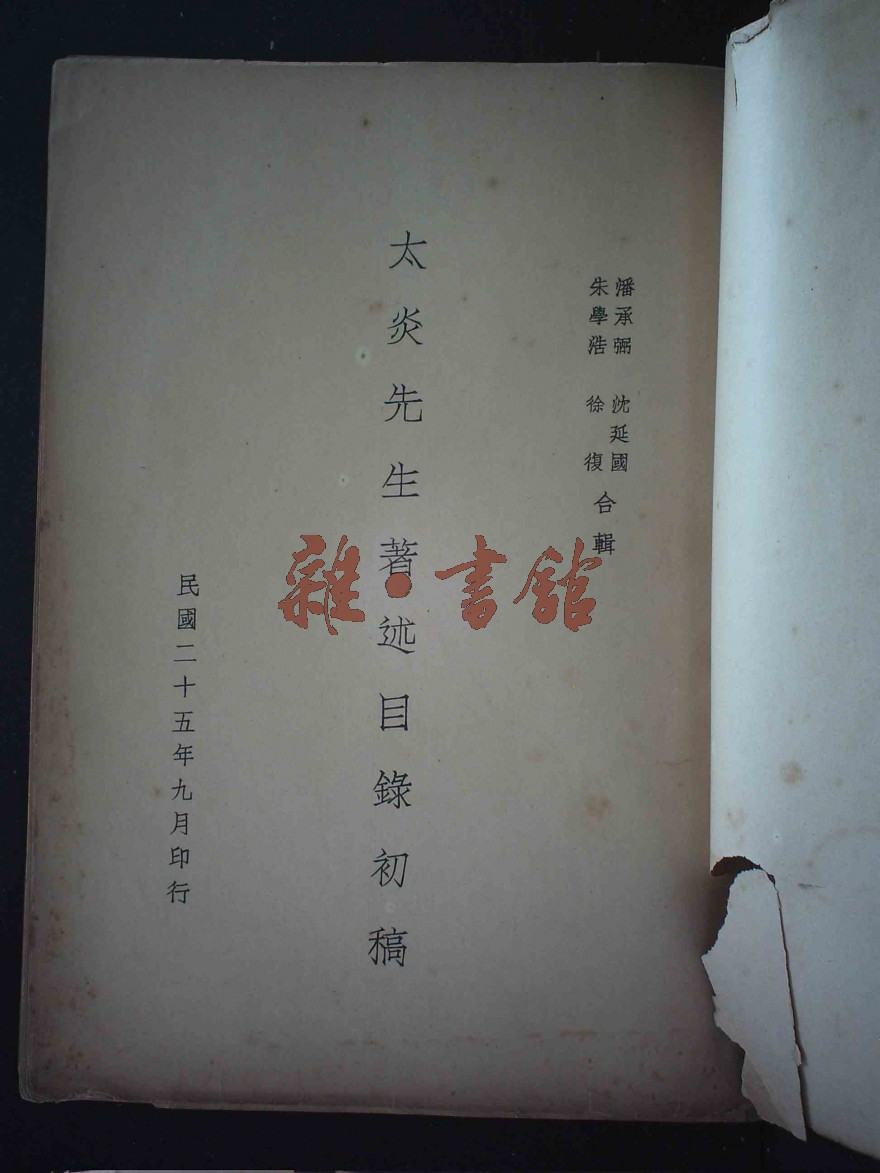 潘承弼　沈延國
朱學浩　徐復
合輯
太炎先生著述目錄初稿
民國二十五年九月印行
雜·書館